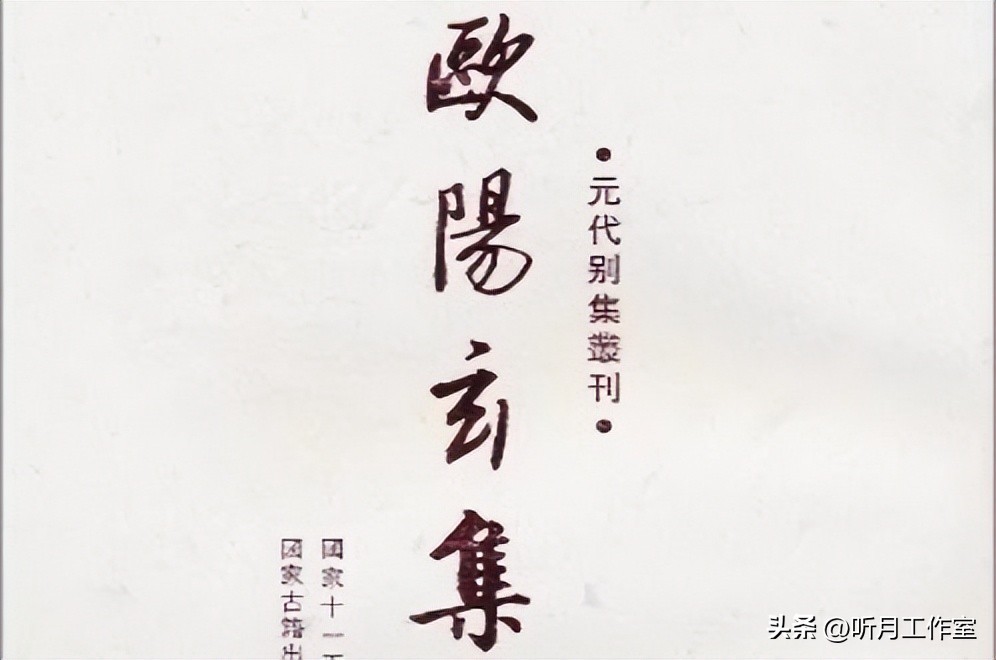 •元代别集叢刊•
歐陽玄集
國家十一
國家古籍出
头条 @听月工作室